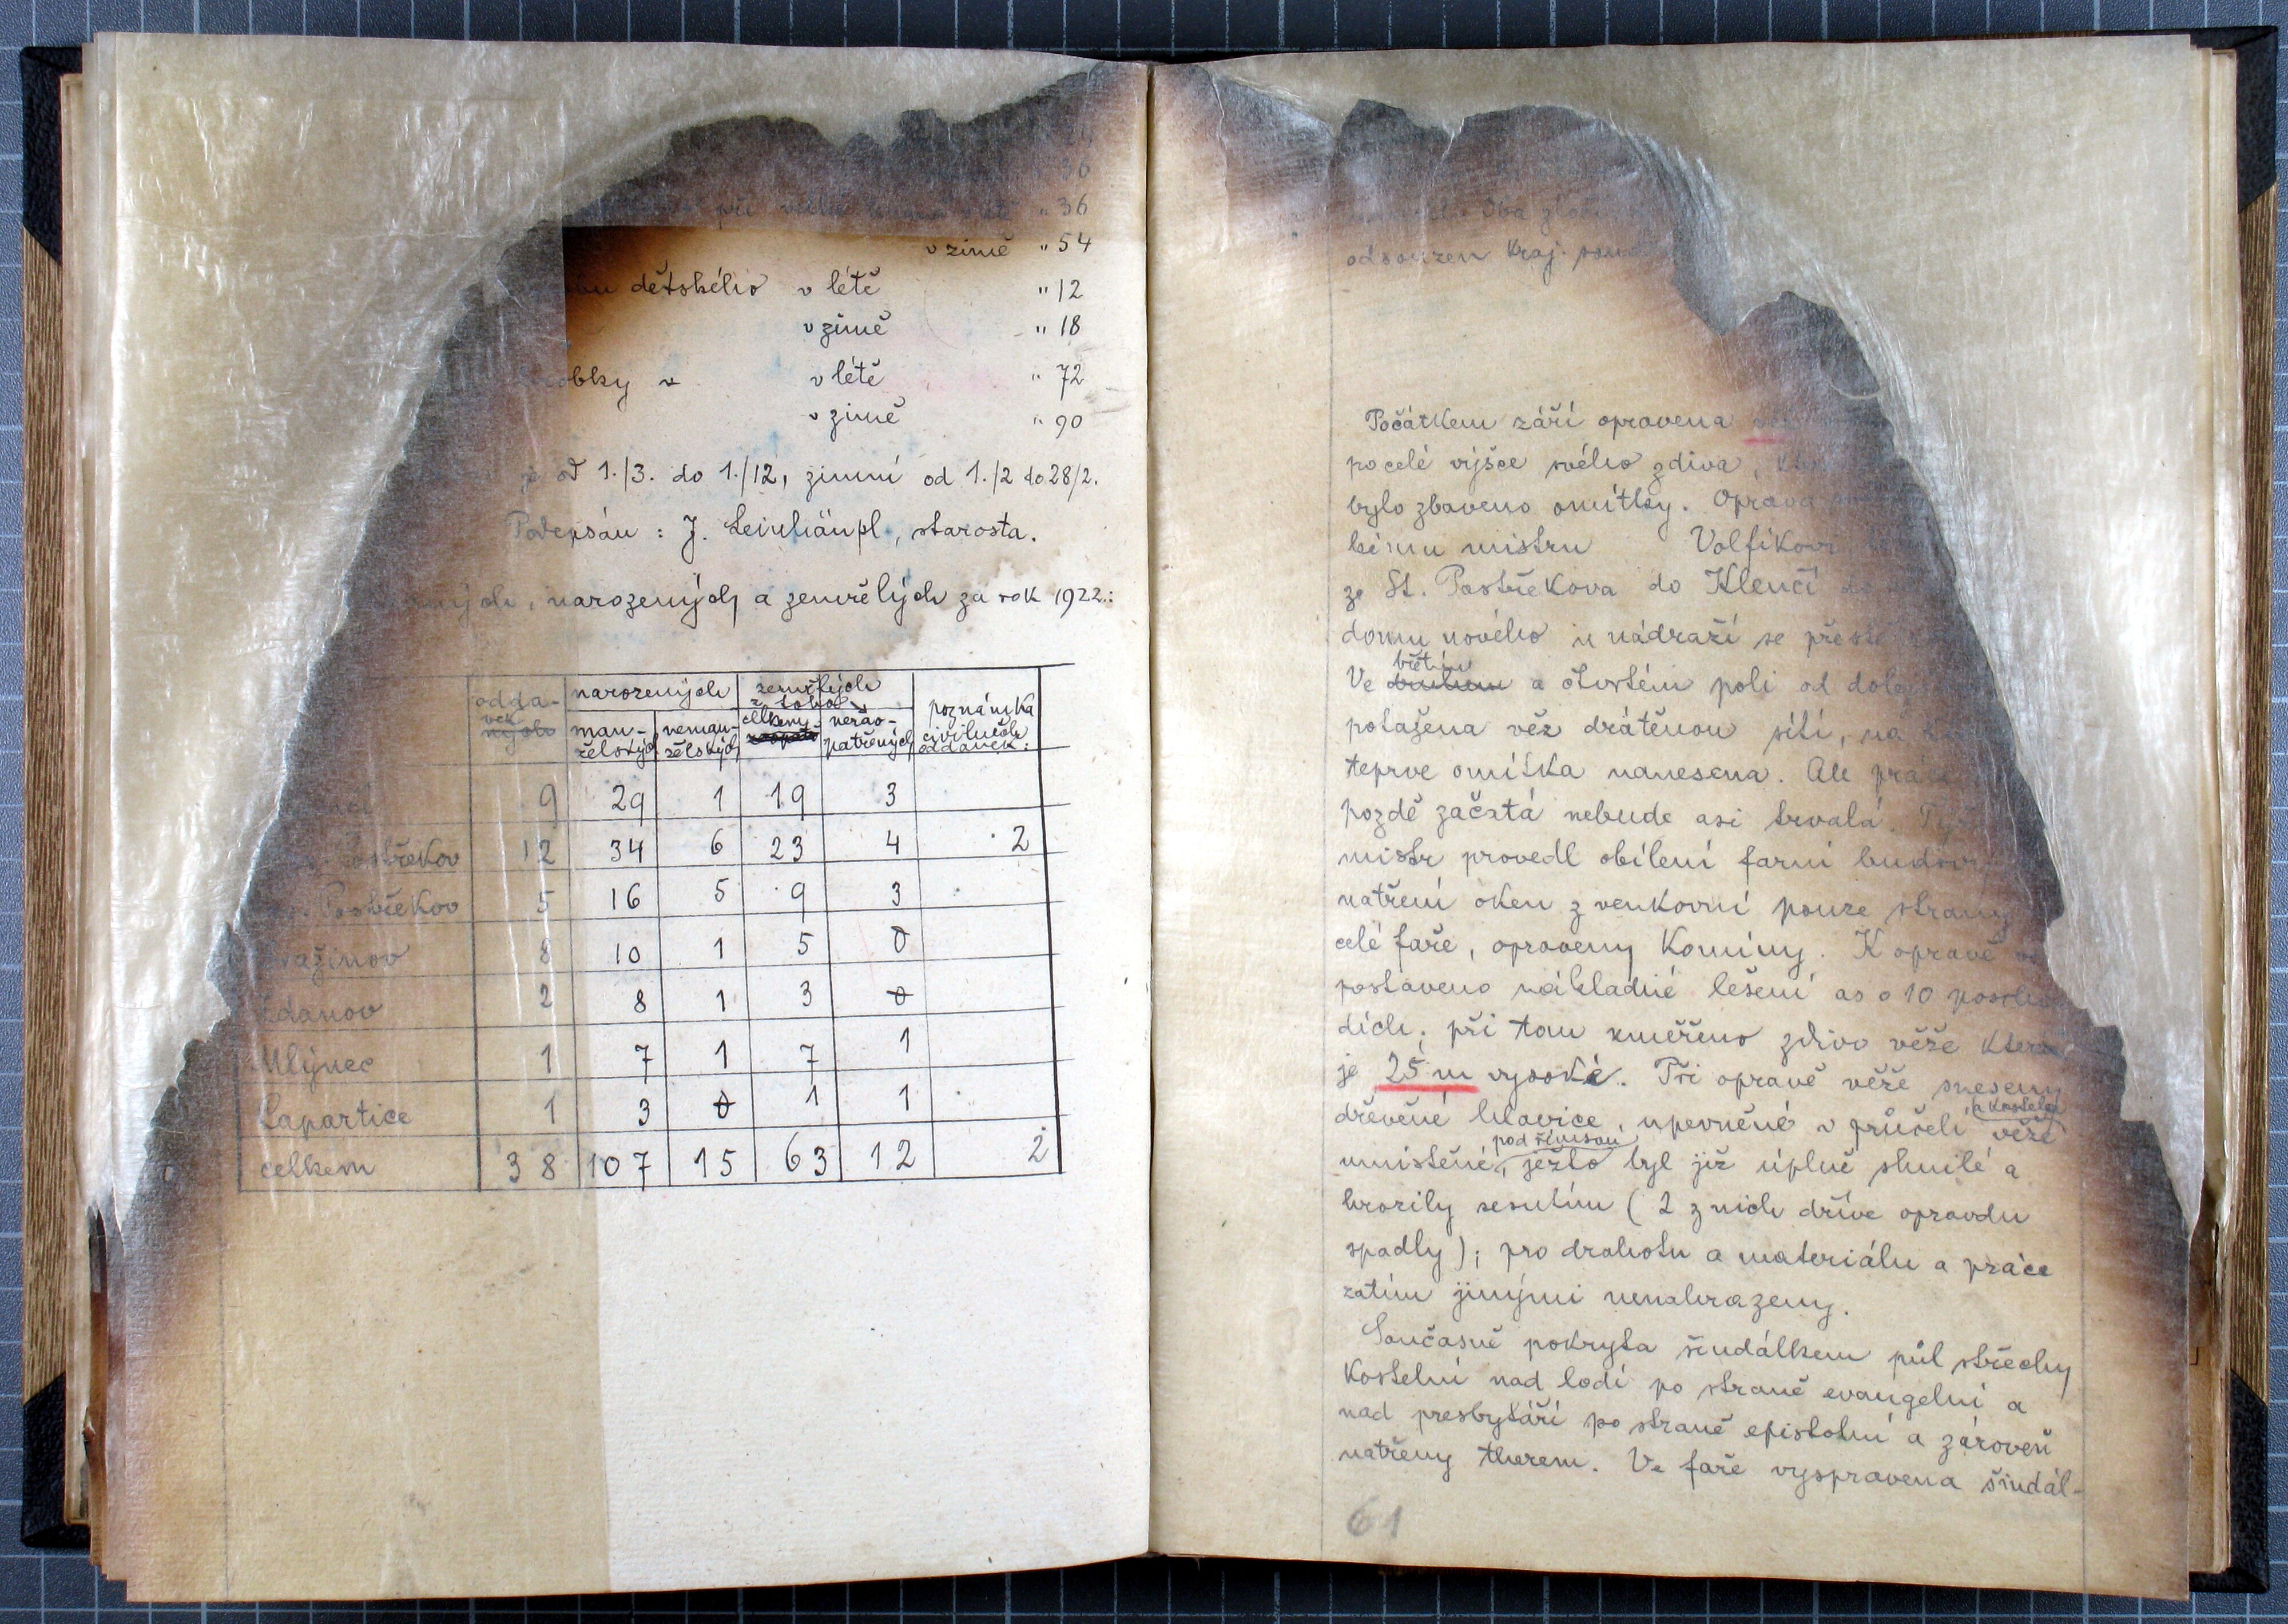 36
při " 36
v zimě " 54
dětského v létě " 12
v zimě " 18
v létě " 72
v zimě " 90
od 1./3. do 1./12, zimní od 1./2 do 28/2.
Podepsán : J. Leinhäupl, starosta.
narozených a zemřelých za rok 1922.:
odda- narozených zemřelých poznámka
vek z toho civilních
ných man- neman- celkem nezao- oddavek:
želských želských patřených
9 29 1 19 3
Postřekov 12 34 6 23 4 2
Postřekov 5 16 5 9 3
8 10 1 5 0
Ždanov 2 8 1 3 0
Mlýnec 1 7 1 7 1
Lapartice 1 3 0 1 1
celkem 38 107 15 63 12 2
Oba
odsouzen Kraj.
Počátkem září opravena
po celé výšce svého zdiva,
bylo zbaveno omítky. Oprava
mistru Volfíkovi
ze St. Postřekova do Klenčí do
domu nového u nádraží se
třetím
Ve druhém a čtvrtém poli od
potažena věž drátěnou sítí, na
teprve omítka nanesena. Ale práce
pozdě začatá nebude asi trvalá.
mistr provedl obílení farní budovy
natření oken z venkovní pouze strany
celé faře, opraveny Komíny. K opravě
postaveno nákladné lešení as o 10
dích; při tom změřeno zdivo věže která
je 25 m vysoké. Při opravě věže sneseny
a kostela
dřevěné hlavice, upevněné v průčelí věže
pod římsou
umístěné, ježto byl již úplně shnilé a
hrozily sesutím ( 2 z nich dříve opravdu
spadly ); pro drahotu a materiálu a práce
zatím jinými nenahrazeny.
Současně pokryta šindálkem půl střechy
Kostelní nad lodí po straně evangelní a
nad presbytáří po straně epistolní a zároveň
natřeny therem. Ve faře vyspravena šindál-
61